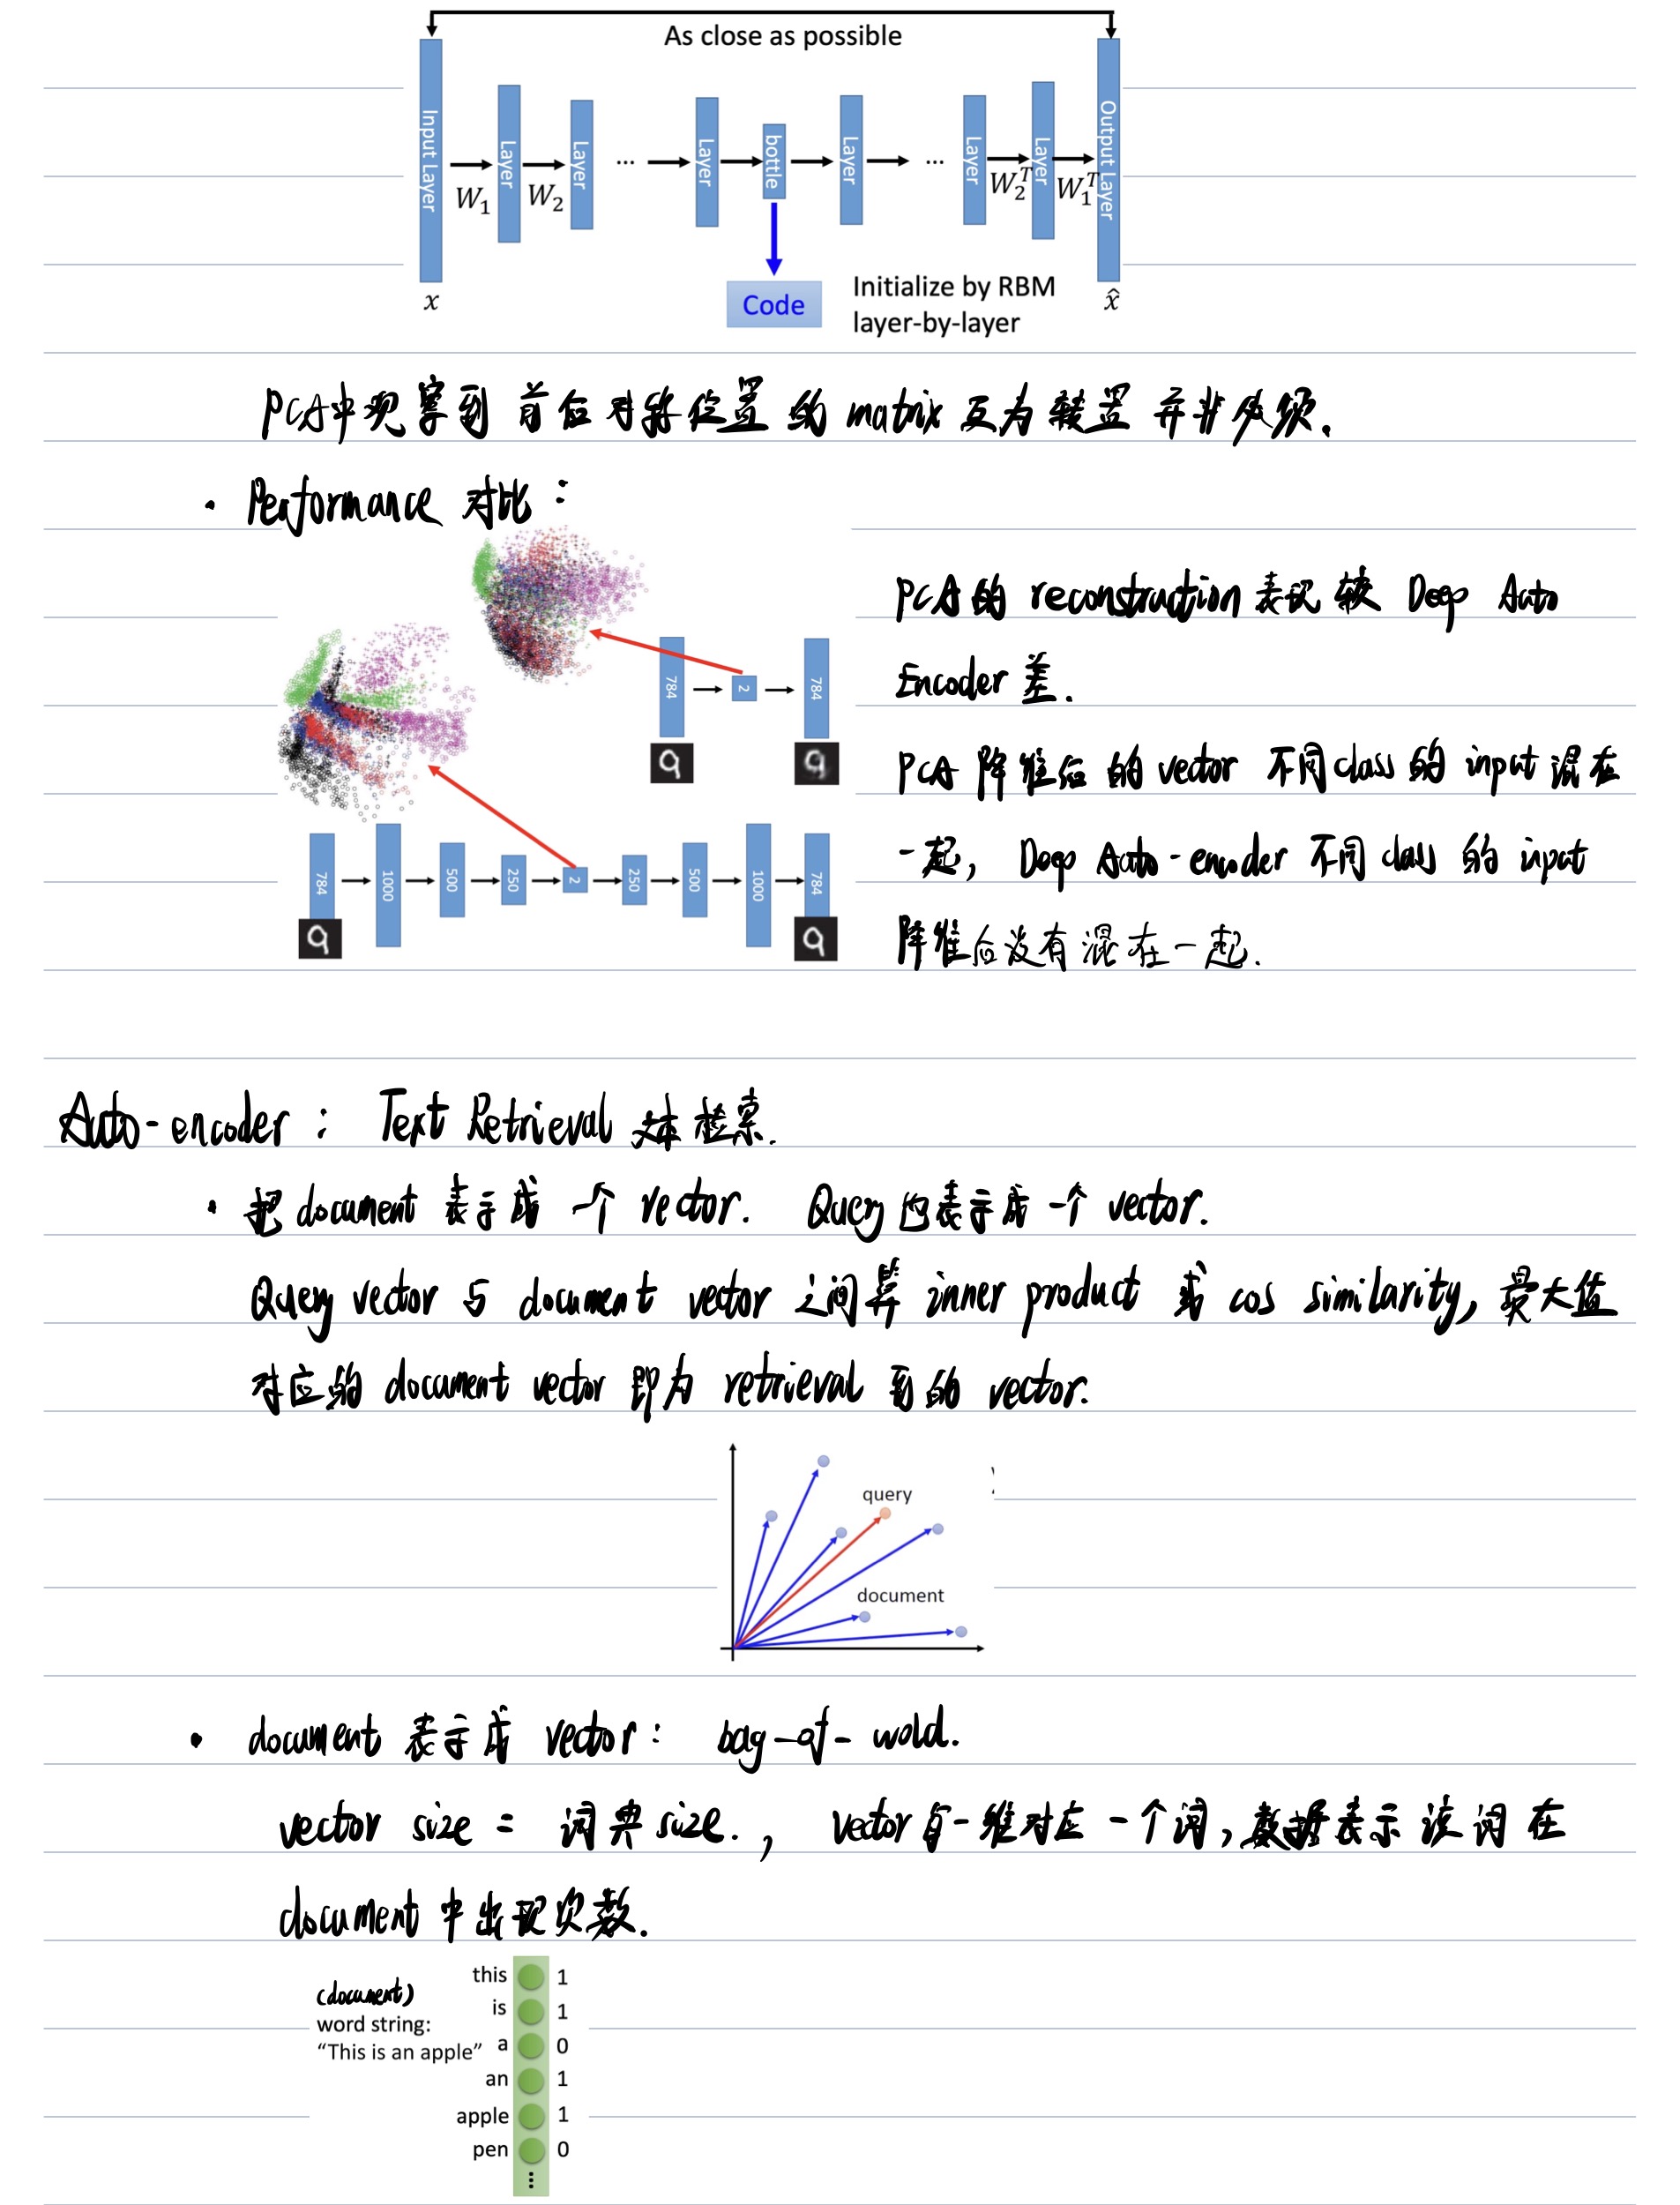 As close as possible
Input Layer
Layer
Layer
...
Layer
bottle
Layer
...
Layer
Layer
Output Layer
W₁
W₂
W₂ᵀ
W₁ᵀ
x
Code
Initialize by RBM
layer-by-layer
x̂
PCA中观察到 前后对称位置 的 matrix 互为转置 并非必须.
· Performance 对比：
784
2
784
PCA的 reconstruction 表现 较 Deep Auto
Encoder 差.
PCA 降维后 的 vector 不同class的 input 混在
一起, Deep Auto-encoder 不同 class 的 input
降维后没有 混在一起.
9
9
784
1000
500
250
2
250
500
1000
784
9
9
Auto-encoder： Text Retrieval 文本检索.
· 把 document 表示成 一个 vector. Query 也表示成 一个 vector.
Query vector 与 document vector 之间算 inner product 或 cos similarity, 最大值
对应的 document vector 即为 retrieval 到的 vector.
query
document
· document 表示成 vector： bag-of-wold.
vector size = 词典 size., vector 每一维对应 一个词, 数据表示该词在
document 中出现次数.
(document)
word string:
“This is an apple”
this 1
is 1
a 0
an 1
apple 1
pen 0
⋮